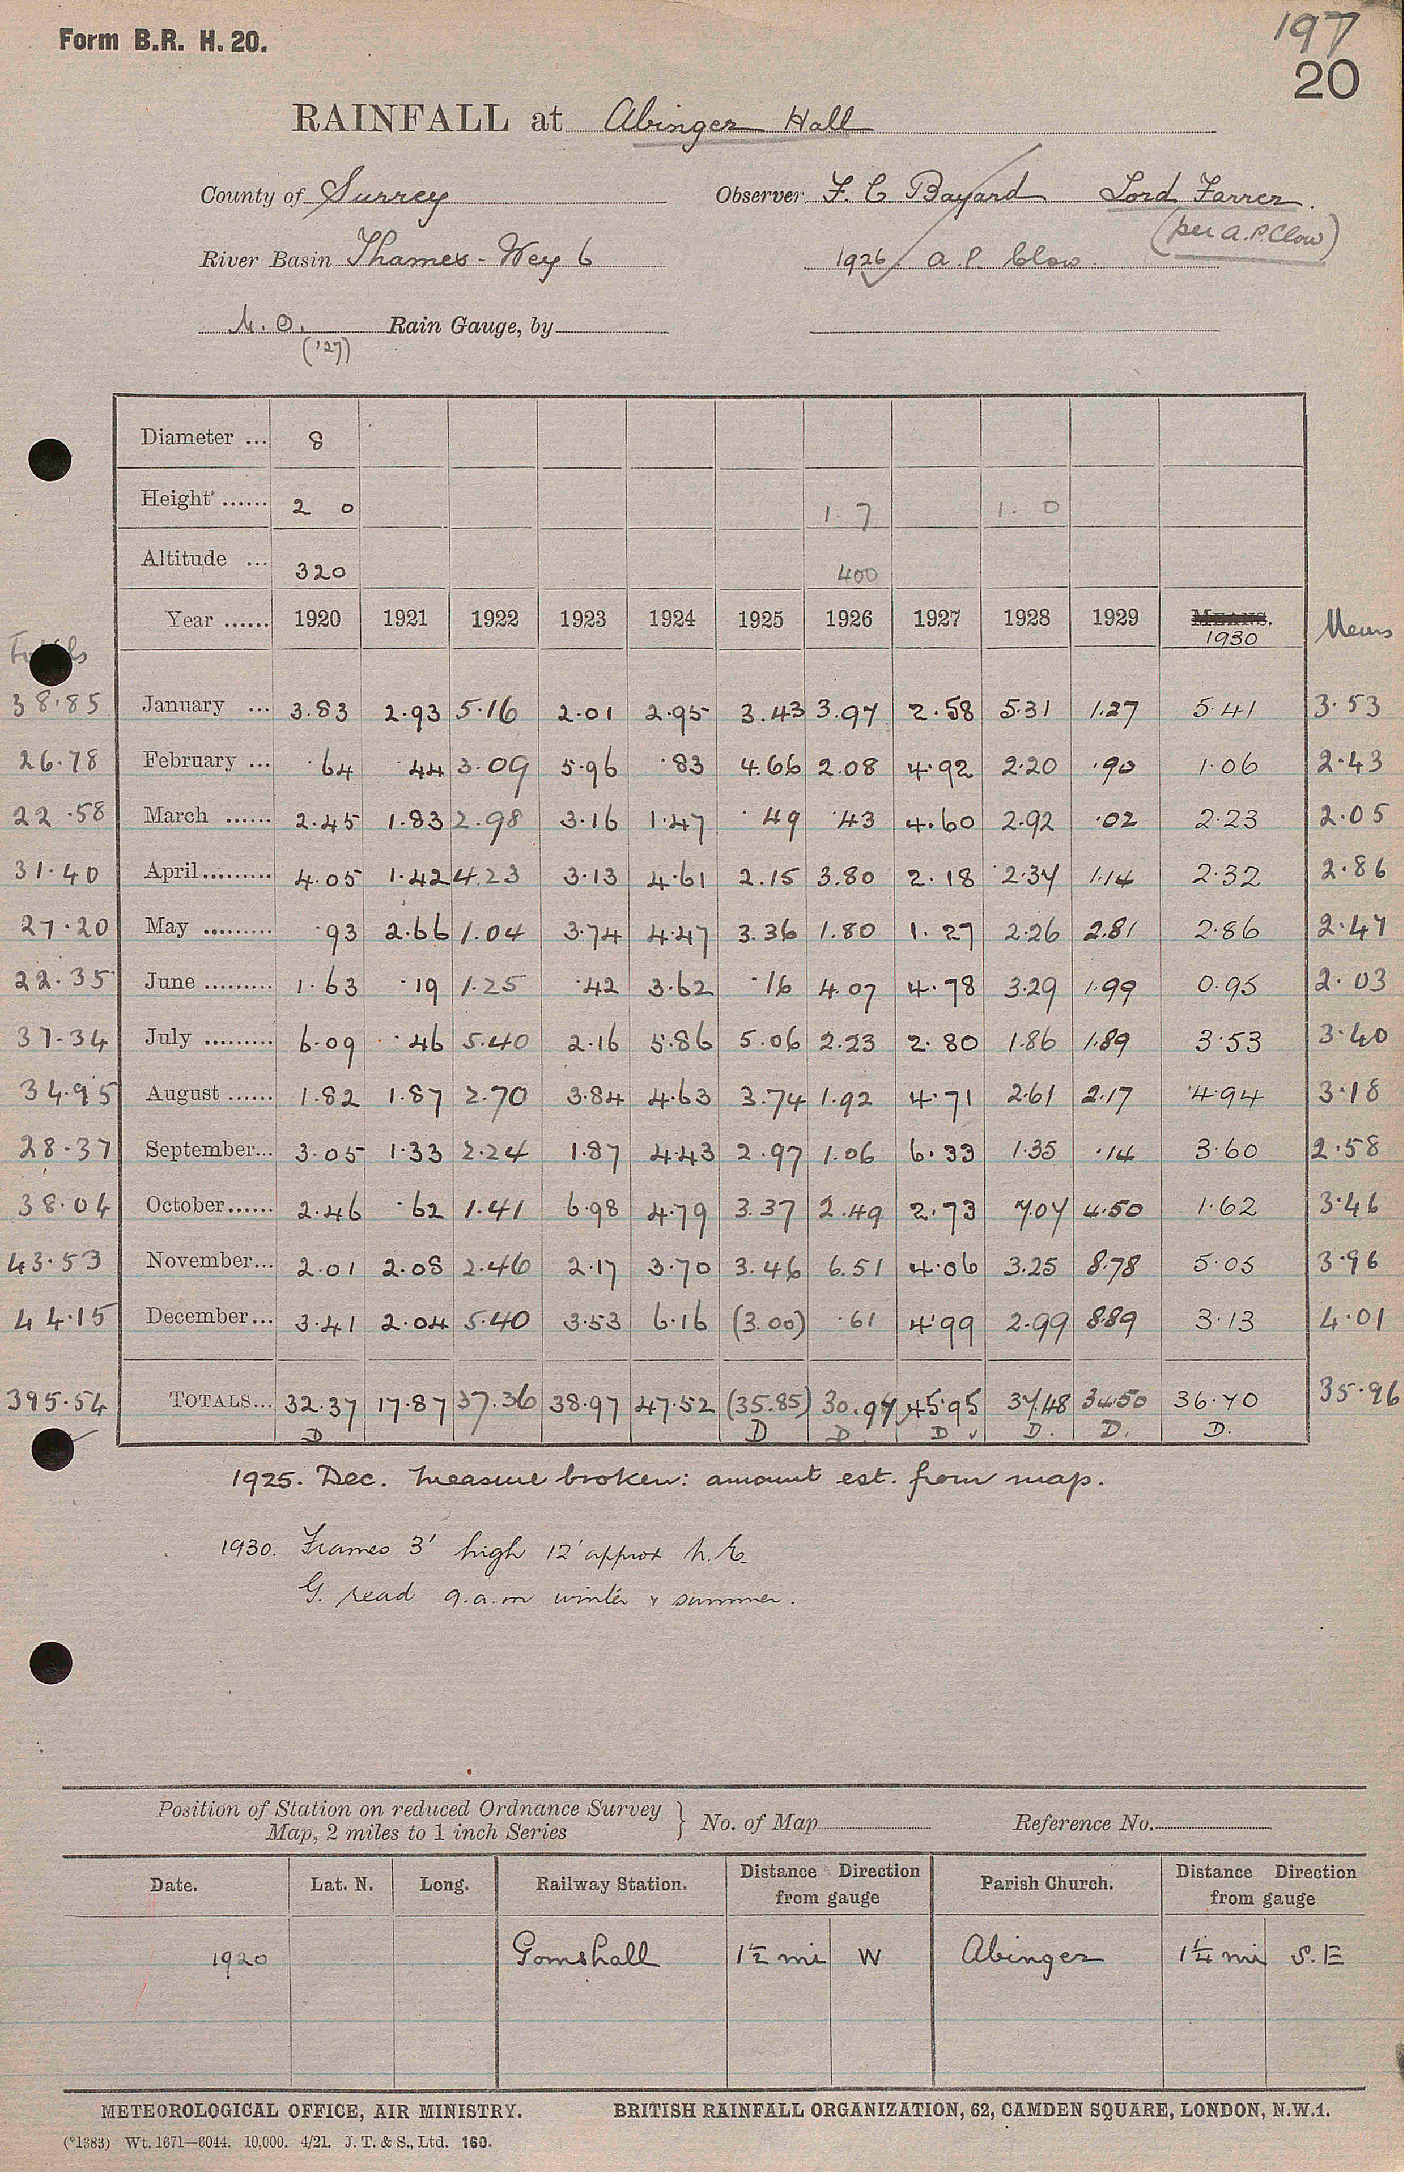 Form B.R. H. 20.
197
20
RAINFALL at Abinger Hall
County of Surrey Observer F. C Bayard Lord Farrer.
(per A.P. Clow)
River Basin Thames - Wey 6 1926 A. P. Clow.
M. O. Rain Gauge, by
('27)
Diameter ... 8
Height ...... 2 0 1. 7 1. 0
Altitude ... 320 400
Totals Year ...... 1920 1921 1922 1923 1924 1925 1926 1927 1928 1929 MEANS. 1930 Means
38.85 January ... 3.83 2.93 5.16 2.01 2.95 3.43 3.97 2.58 5.31 1.27 5.41 3.53
26.78 February ... .64 .44 3.09 5.96 .83 4.66 2.08 4.92 2.20 .90 1.06 2.43
22.58 March ...... 2.45 1.83 2.98 3.16 1.47 .49 .43 4.60 2.92 .02 2.23 2.05
31.40 April ......... 4.05 1.42 4.23 3.13 4.61 2.15 3.80 2.18 2.37 1.14 2.32 2.86
27.20 May ......... .93 2.66 1.04 3.74 4.47 3.36 1.80 1.27 2.26 2.81 2.86 2.47
22.35 June ......... 1.63 .19 1.25 .42 3.62 .16 4.07 4.78 3.29 1.99 0.95 2.03
37.34 July ......... 6.09 .46 5.40 2.16 5.86 5.06 2.23 2.80 1.86 1.89 3.53 3.40
34.95 August ...... 1.82 1.87 2.70 3.84 4.63 3.74 1.92 4.71 2.61 2.17 4.94 3.18
28.37 September... 3.05 1.33 2.24 1.87 4.43 2.97 1.06 6.33 1.35 .14 3.60 2.58
38.04 October...... 2.46 .62 1.41 6.98 4.79 3.37 2.49 2.73 7.07 4.50 1.62 3.46
43.53 November... 2.01 2.08 2.46 2.17 3.70 3.46 6.51 4.06 3.25 8.78 5.05 3.96
44.15 December... 3.41 2.04 5.40 3.53 6.16 (3.00) .61 4.99 2.99 8.89 3.13 4.01
395.54 TOTALS... 32.37 17.87 37.36 38.97 47.52 (35.85) 30.97 45.95 37.48 34.50 36.70 35.96
D D D. D D. D. D.
1925. Dec. Measure broken: amount est. from map.
1930. Frames 3' high 12' approx N.E.
G. read 9.a.m winter & summer.
Position of Station on reduced Ordnance Survey Map, 2 miles to 1 inch Series } No. of Map Reference No.
Date. Lat. N. Long. Railway Station. Distance Direction from gauge Parish Church. Distance Direction from gauge
1920 Gomshall 1½ mi W Abinger 1¼ mi S.E
METEOROLOGICAL OFFICE, AIR MINISTRY. BRITISH RAINFALL ORGANIZATION, 62, CAMDEN SQUARE, LONDON, N.W.1.
(*1383) Wt. 1671—6044. 10,000. 4/21. J. T. & S., Ltd. 160.